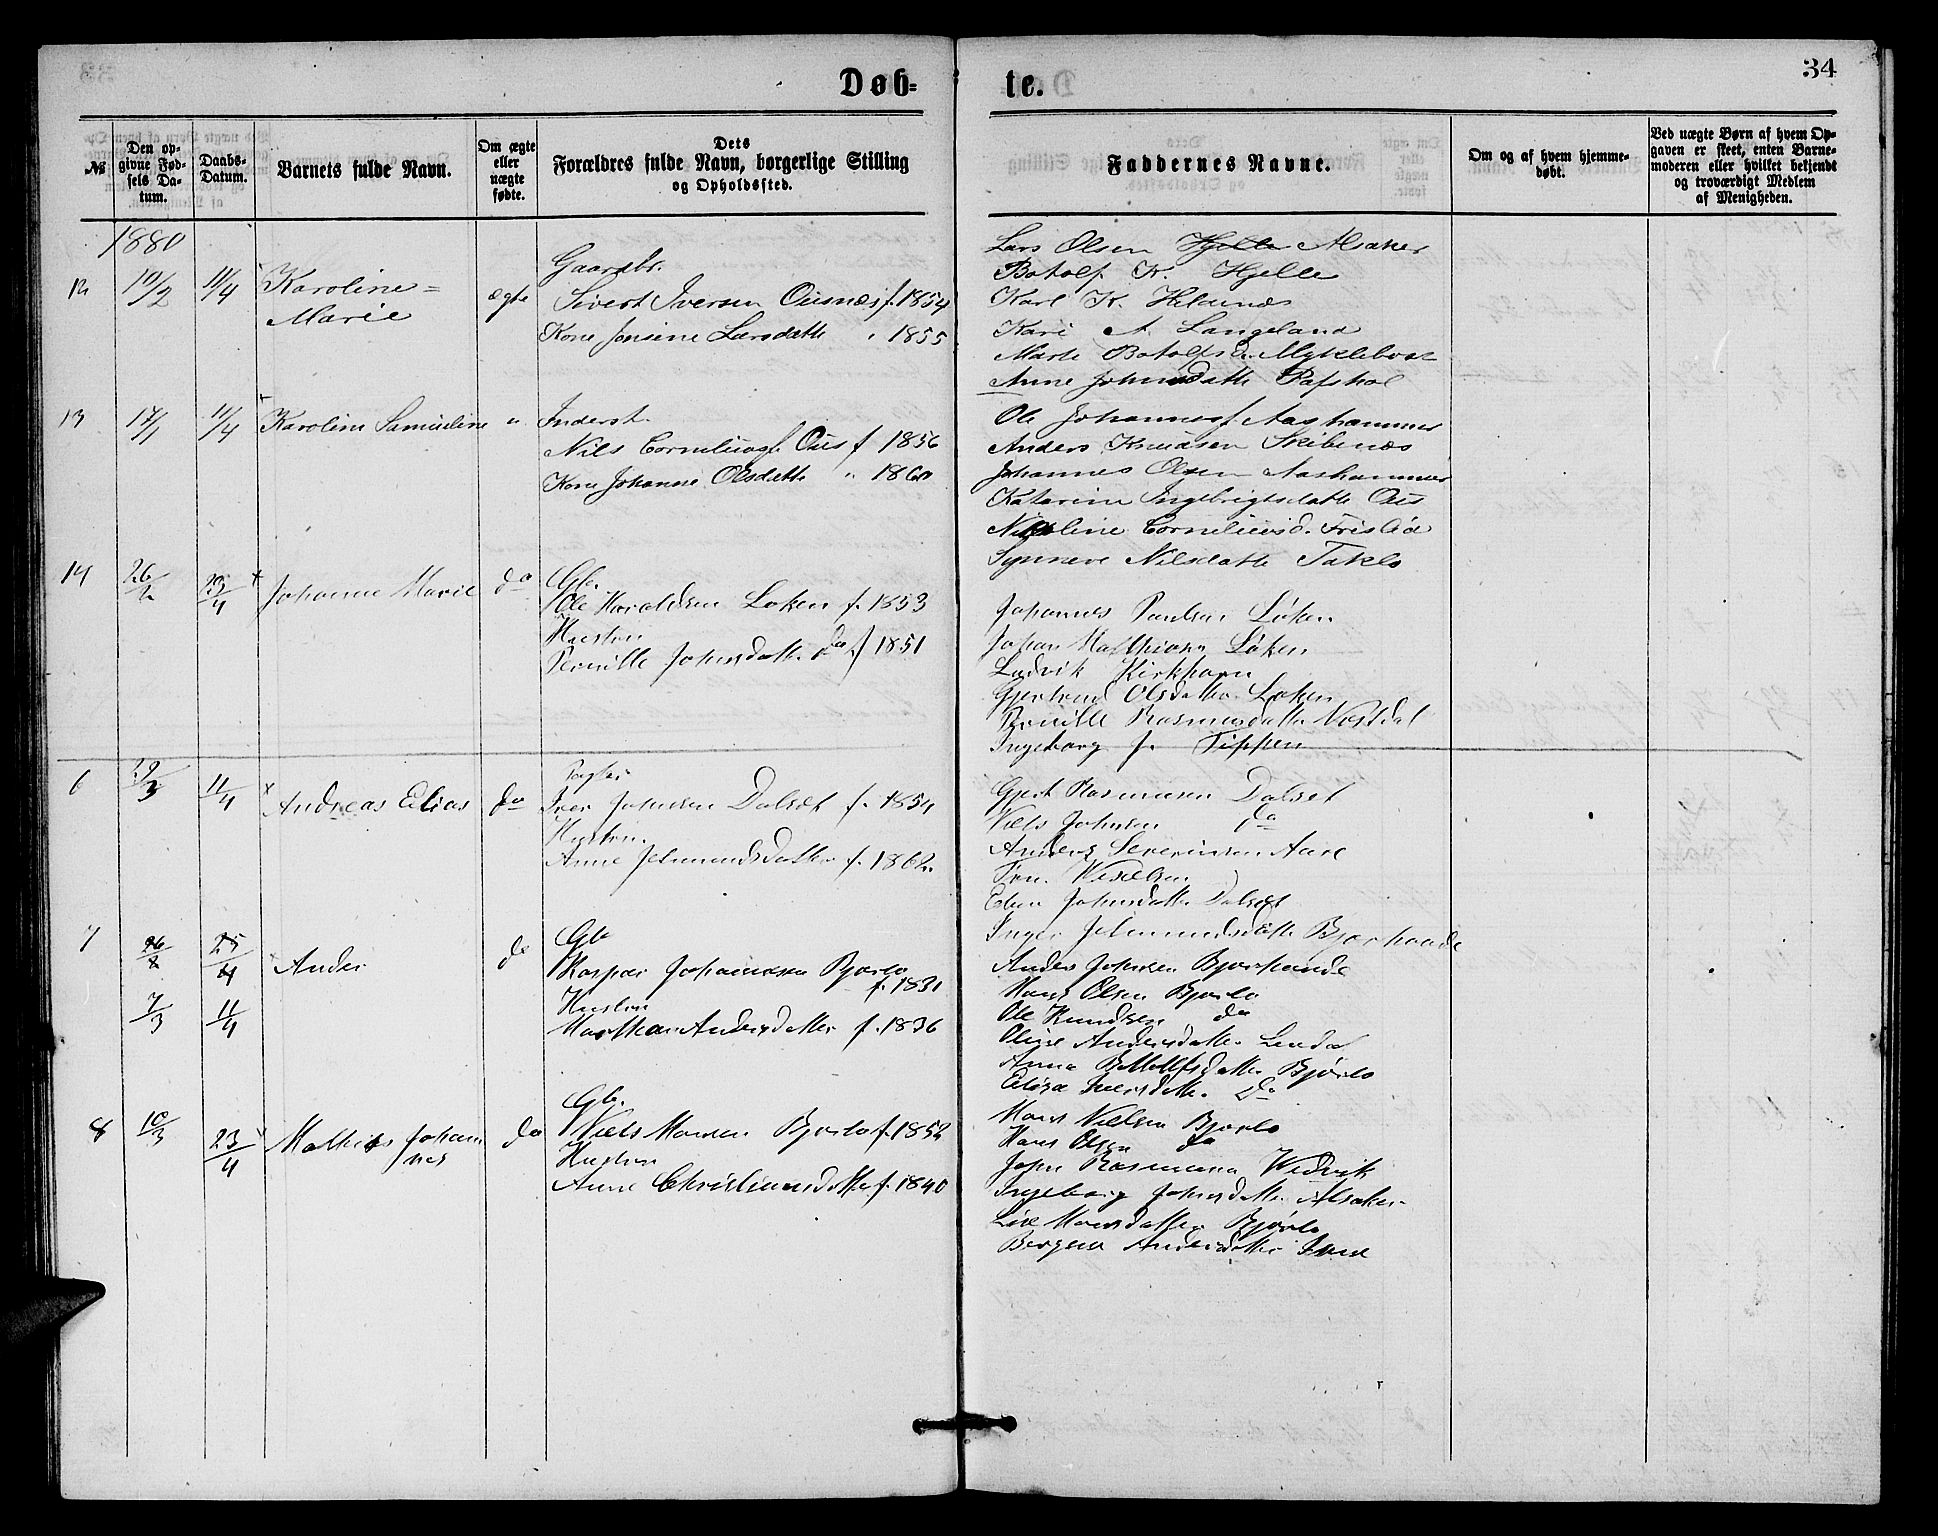 Døb=
te.
34
№
Den op-
givne Fød-
sels Da-
tum.
Daabs-
Datum.
Barnets fulde Navn.
Om ægte
eller
uægte
fødte.
Dets
Forældres fulde Navn, borgerlige Stilling
og Opholdssted.
Faddernes Navne.
Om og af hvem hjemme-
døbt.
Ved uægte Børn af hvem Op-
gaven er skeet, enten Barne-
moderen eller hvilket bekjendt
og troværdigt Medlem
af Menigheden.
1880
12
10/2
11/4
Karoline=
Marie
ægte
Gaardbr.
Sivert Iversen Ousnæs f. 1854
Kone Jonsine Larsdatte " 1855
Lars Olsen Hjelle Alsaker
Botolf K. Hjelle
Karl K. Hildenæs
Kari A. Langeland
Marte Botolfsd. Myklebost
Anne Johnsdatte
13
17/1
11/4
Karoline Samueline
"
Inderst.
Nils Corneliusf. Ous f 1856
Kone Johanne Olsdatte " 1860
Ole Johannesf. Aashammer
Anders Knudsen Skibenæs
Johannes Olsen Aashammer
Katarine Ingebrigtsdatte Ous
Nikoline Corneliusd.
Synneve Nilsdatte Takle
14
26/2
23/4
Johanne Marie
do
Gb.
Ole Haraldsen Løken f. 1853
Hustru
Pernille Johnsdatter do f 1851
Johannes Paulsen Løken
Johan Mathiasen Løken
Ludvik Kirkhorn
Gjertrud Olsdatter Løken
Pernille Rasmusdatter
Ingeborg J. Tippen
6
29/3
11/4
Andreas Elias
do
Iver Johnsen Dalset f. 1854
Hustru
Anne Jetmundsdatter f. 1862.
Gjert Rasmusen Dalset
Niels Johnsen do
Anders Severinsen Aare
Elen Johnsdatter Dalset
Inger Jetmundsdatter Bjørhovde
7
26/2
25/4
7/3
11/4
Anders
do
Gb
Kaspar Johannesen Bjørlo
f. 1831
Hustru
Marthe Andersdatter f. 1836
Anders Johnsen Bjørhovde
Hans Olsen Bjørlo
Ole Knudsen do
Oline Andersdatter Lindal
Anna Botolfsdatter Bjørlo
Elisa Iversdatter do
8
10/3
23/4
Mathias Johan
nes
do
Gb.
Niels Monsen Bjørlo f. 1852
Hustru
Anne Christiansdatter f. 1840
Mons Nielsen Bjørlo
Hans Olsen do
John Rasmusen Vedvik
Ingeborg Johnsdatter Alsaker
Lise Monsdatter Bjørlo
Andersdatter